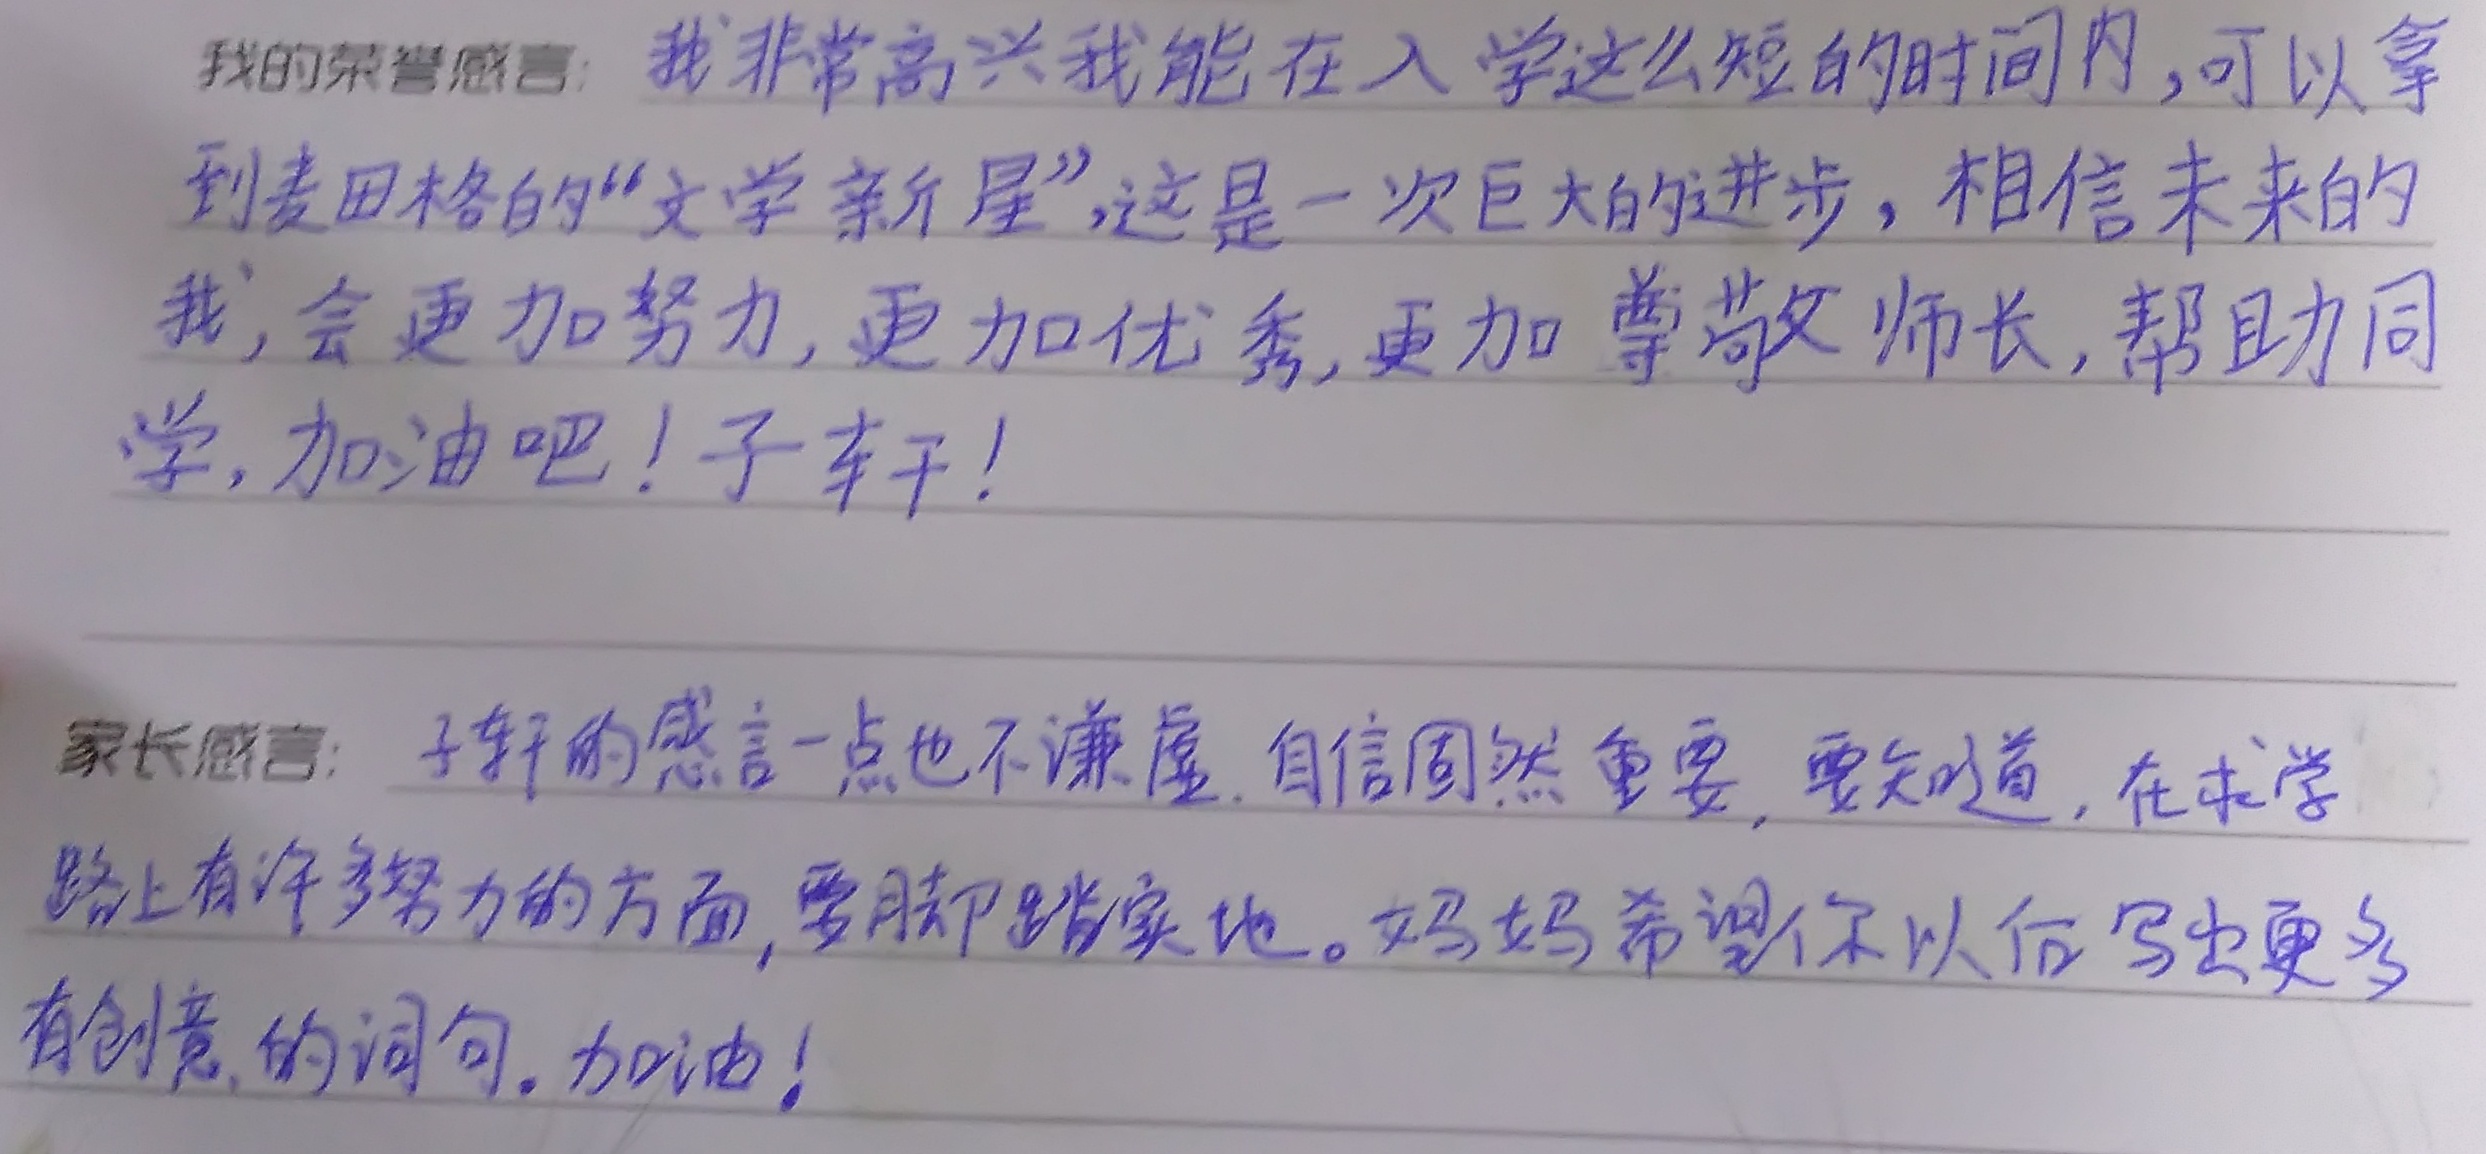 我的荣誉感言: 我非常高兴我能在入学这么短的时间内,可以拿
到麦田格的“文学新星”,这是一次巨大的进步,相信未来的
我,会更加努力,更加优秀,更加尊敬师长,帮助同
学,加油吧!子轩!
家长感言: 子轩的感言一点也不谦虚.自信固然重要,要知道,在求学
路上有许多努力的方面,要脚踏实地。妈妈希望你以后写出更多
有创意的词句.加油!